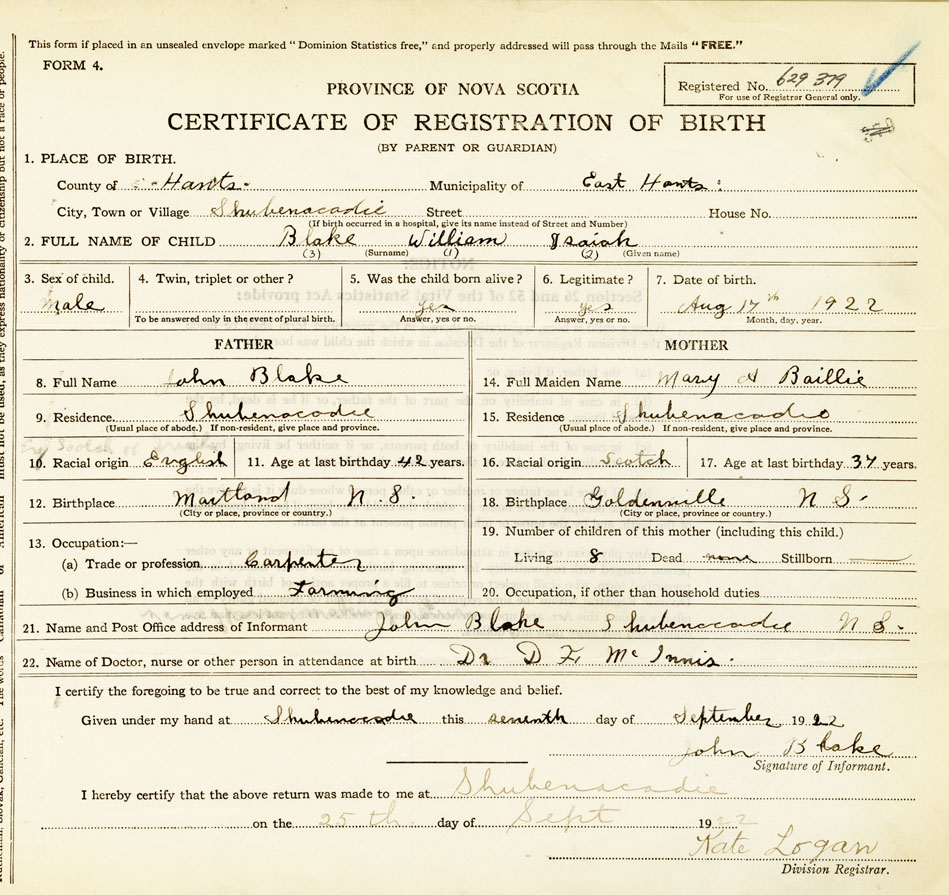 This form if placed in an unsealed envelope marked "Dominion Statistics free," and properly addressed will pass through the Mails "FREE."
FORM 4.
Registered No. 629 379
For use of Registrar General only.
PROVINCE OF NOVA SCOTIA
CERTIFICATE OF REGISTRATION OF BIRTH
(BY PARENT OR GUARDIAN)
1. PLACE OF BIRTH.
County of Hants Municipality of East Hants
City, Town or Village Shubenacadie Street House No.
(If birth occurred in a hospital, give its name instead of Street and Number)
2. FULL NAME OF CHILD Blake William Isaiah
(3) (Surname) (1) (2) (Given name)
3. Sex of child. 4. Twin, triplet or other? 5. Was the child born alive? 6. Legitimate? 7. Date of birth.
Male yes yes Aug 17th 1922
To be answered only in the event of plural birth. Answer, yes or no. Answer, yes or no. Month, day, year.
FATHER
8. Full Name John Blake
9. Residence Shubenacadie
(Usual place of abode.) If non-resident, give place and province.
10. Racial origin English 11. Age at last birthday 42 years.
12. Birthplace Maitland N.S.
(City or place, province or country.)
13. Occupation:—
(a) Trade or profession Carpenter
(b) Business in which employed Farming
MOTHER
14. Full Maiden Name Mary A Baillie
15. Residence Shubenacadie
(Usual place of abode.) If non-resident, give place and province.
16. Racial origin Scotch 17. Age at last birthday 37 years.
18. Birthplace Goldenville N S.
(City or place, province or country.)
19. Number of children of this mother (including this child.)
Living 8 Dead none Stillborn
20. Occupation, if other than household duties
21. Name and Post Office address of Informant John Blake Shubenacadie N S.
22. Name of Doctor, nurse or other person in attendance at birth Dr D F McInnis.
I certify the foregoing to be true and correct to the best of my knowledge and belief.
Given under my hand at Shubenacadie this seventh day of September 1922
John Blake
Signature of Informant.
I hereby certify that the above return was made to me at Shubenacadie
on the 25th day of Sept 1922
Kate Logan
Division Registrar.